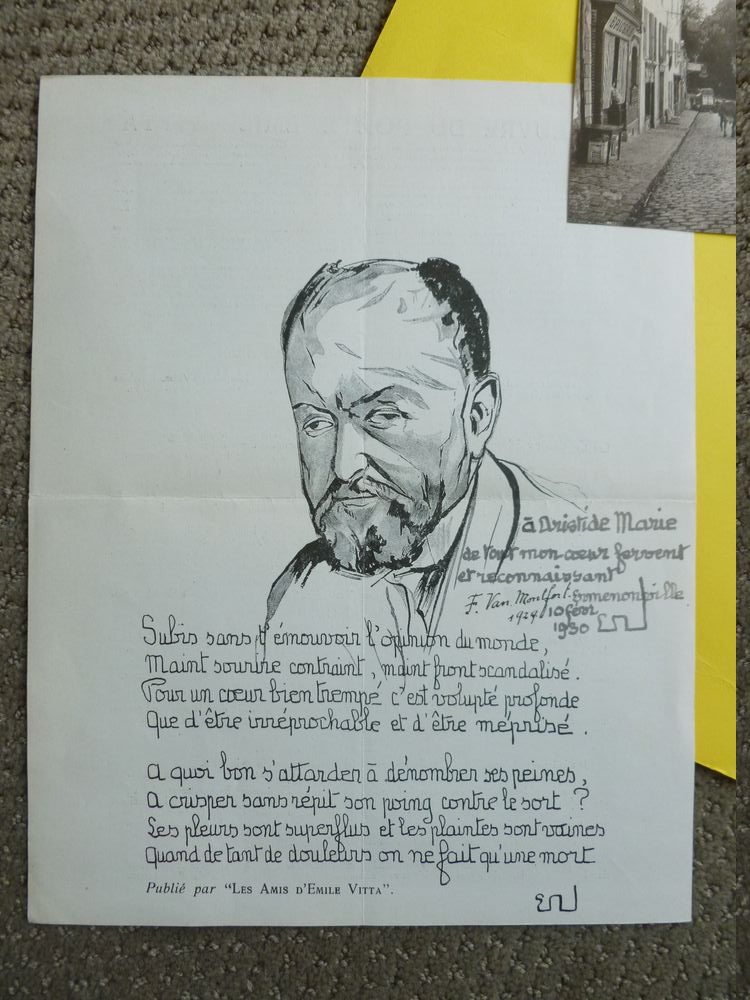 à Aristide Marie
de tout mon cœur fervent
et reconnaissant
F. Van Montfort. Ermenonville
1929 10 févr
1930 EV
Subis sans t'émouvoir l'opinion du monde,
Maint sourire contraint, maint front scandalisé.
Pour un cœur bien trempé c'est volupté profonde
Que d'être irréprochable et d'être méprisé.
A quoi bon s'attarder à dénombrer ses peines,
A crisper sans répit son poing contre le sort ?
Les pleurs sont superflus et les plaintes sont vaines
Quand de tant de douleurs on ne fait qu'une mort
Publié par "Les Amis d'Emile Vitta".
EV